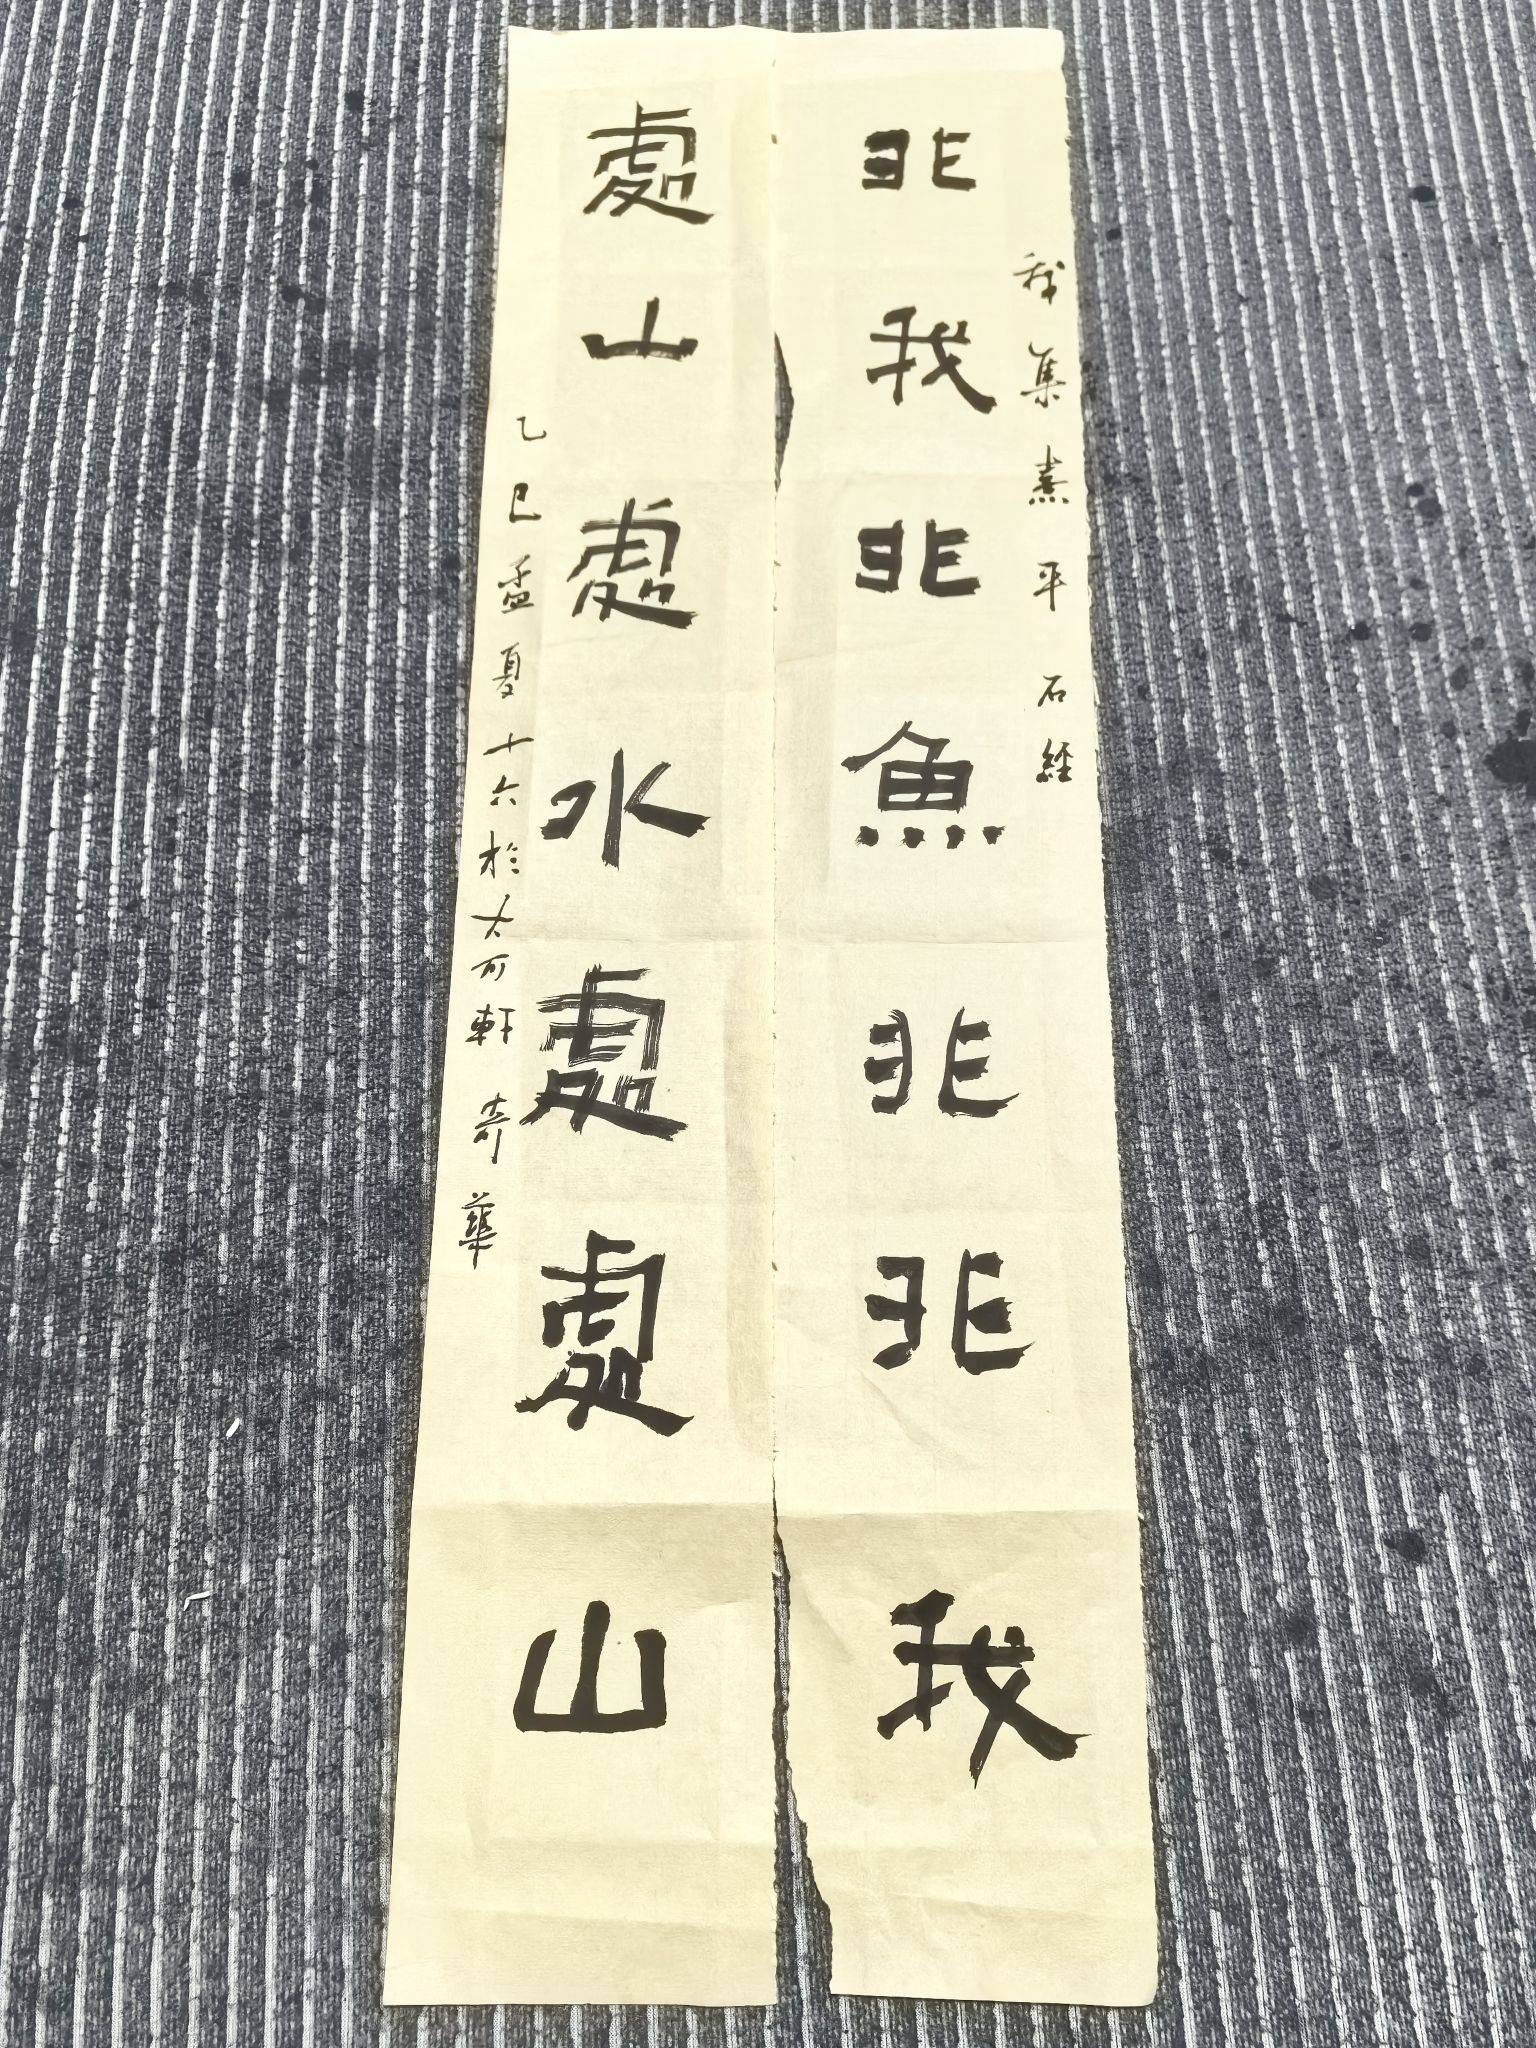 集熹平石經
非我非魚非非我
處山處水處處山
乙巳孟夏十六於大可軒奇華